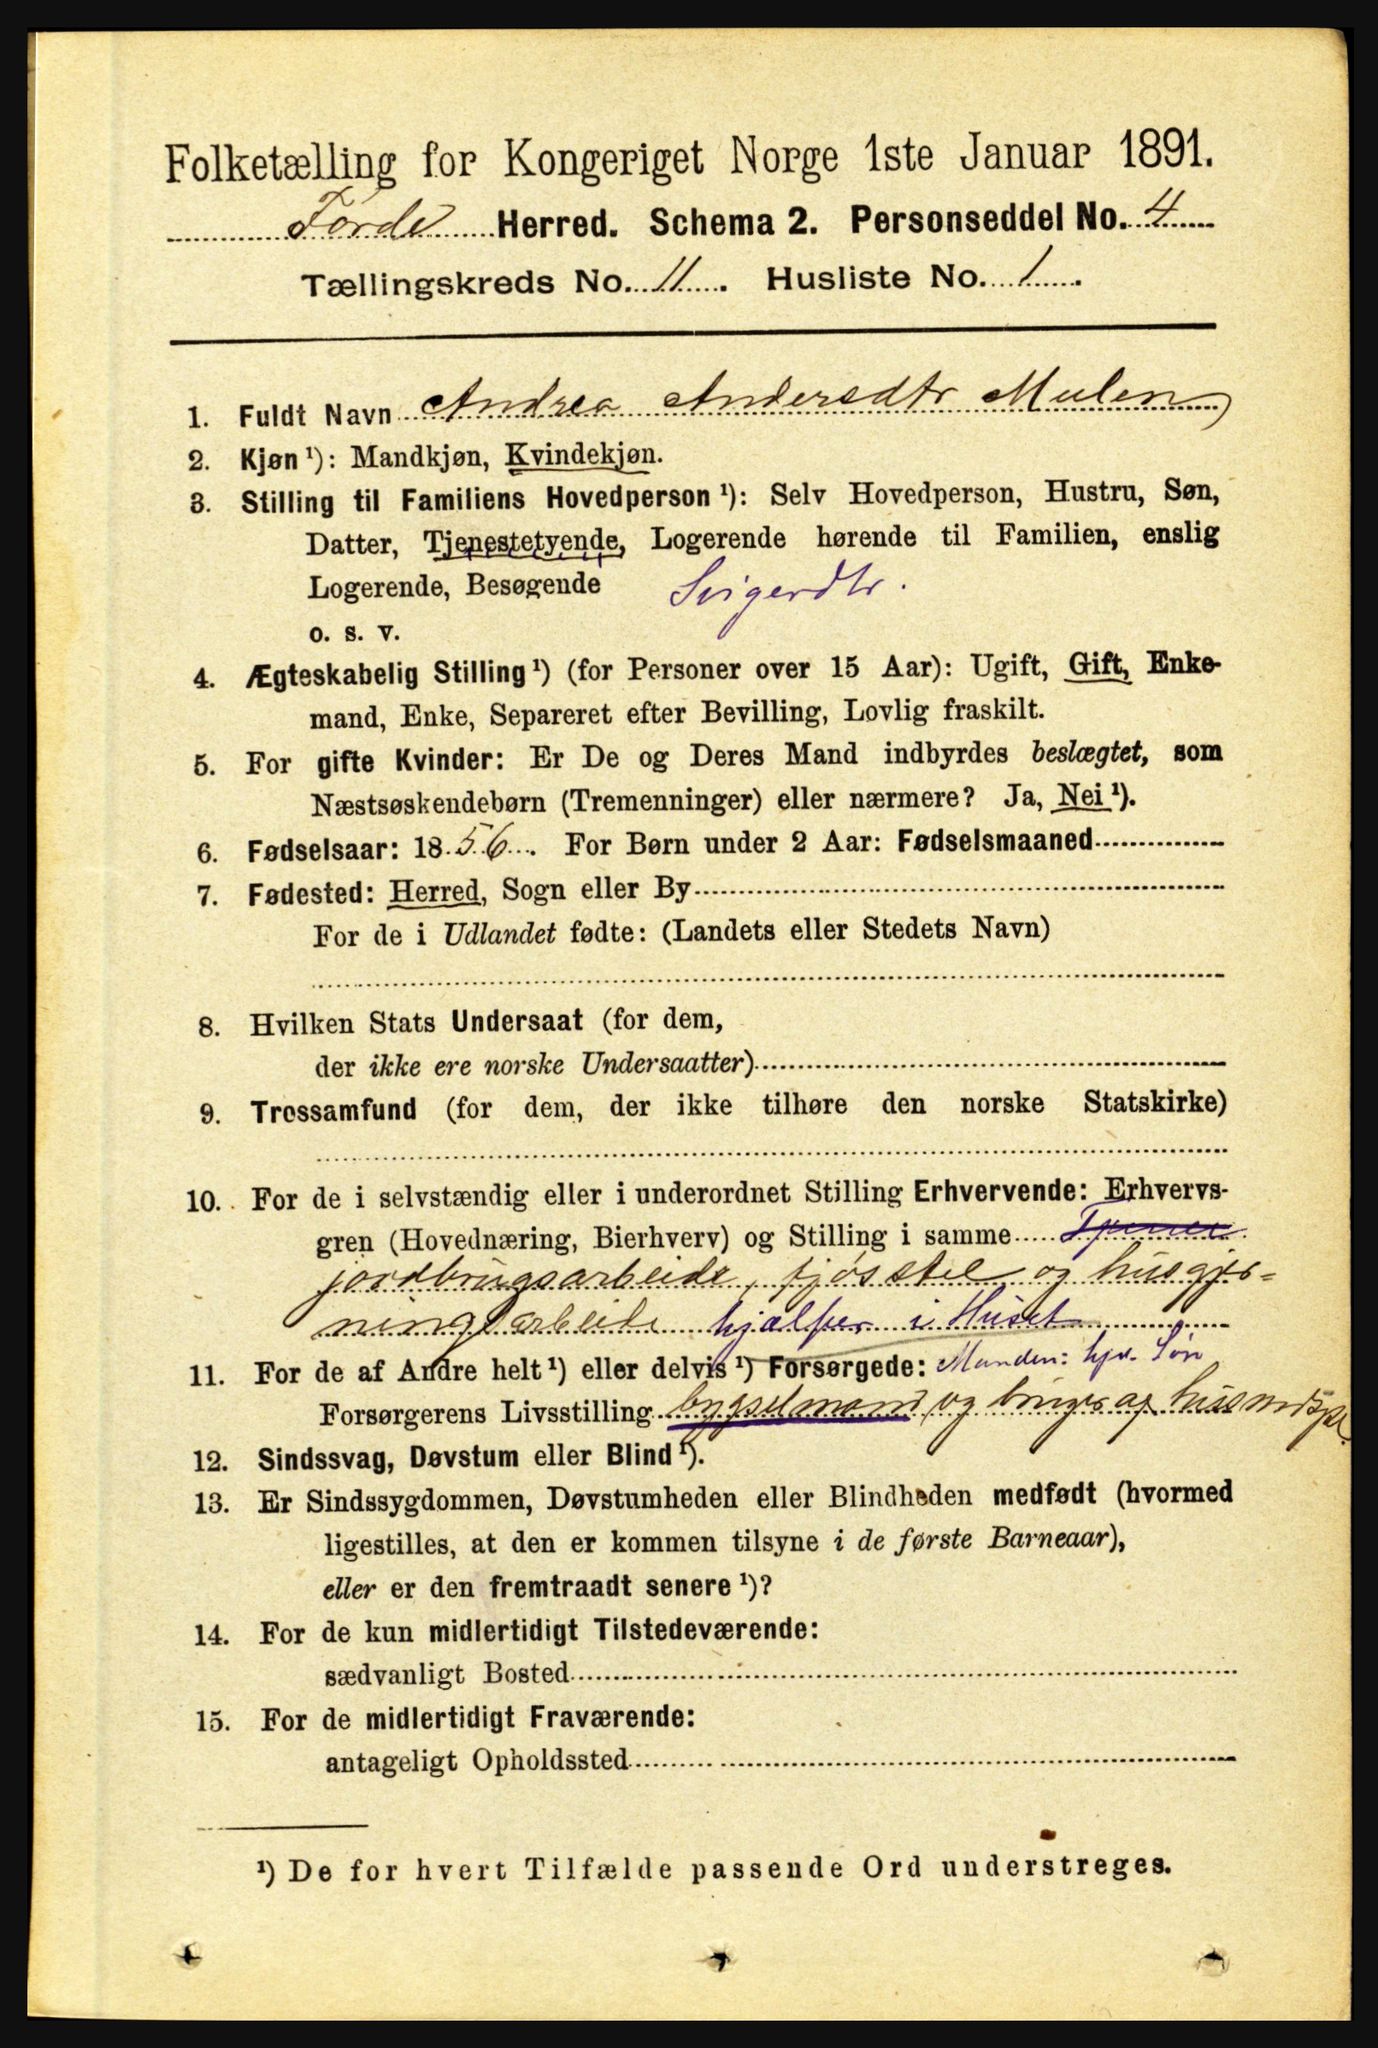 Folketælling for Kongeriget Norge 1ste Januar 1891.
Førde Herred. Schema 2. Personseddel No. 4
Tællingskreds No. 11. Husliste No. 1.
1. Fuldt Navn Andrea Andersdtr Mulen
2. Kjøn ¹): Mandkjøn, Kvindekjøn.
3. Stilling til Familiens Hovedperson ¹): Selv Hovedperson, Hustru, Søn,
Datter, Tjenestetyende, Logerende hørende til Familien, enslig
Logerende, Besøgende Svigerdtr.
o. s. v.
4. Ægteskabelig Stilling ¹) (for Personer over 15 Aar): Ugift, Gift, Enke-
mand, Enke, Separeret efter Bevilling, Lovlig fraskilt.
5. For gifte Kvinder: Er De og Deres Mand indbyrdes beslægtet, som
Næstsøskendebørn (Tremenninger) eller nærmere? Ja, Nei ¹).
6. Fødselsaar: 1856. For Børn under 2 Aar: Fødselsmaaned
7. Fødested: Herred, Sogn eller By
For de i Udlandet fødte: (Landets eller Stedets Navn)
8. Hvilken Stats Undersaat (for dem,
der ikke ere norske Undersaatter)
9. Trossamfund (for dem, der ikke tilhøre den norske Statskirke)
10. For de i selvstændig eller i underordnet Stilling Erhvervende: Erhvervs-
gren (Hovednæring, Bierhverv) og Stilling i samme
jordbrugsarbeide, fjøsstel og husgjer-
ningsarbeide hjælper i Huset
11. For de af Andre helt ¹) eller delvis ¹) Forsørgede: Manden: hjv. Søn
Forsørgerens Livsstilling bygselmand og bruger af husmdspl.
12. Sindssvag, Døvstum eller Blind ¹).
13. Er Sindssygdommen, Døvstumheden eller Blindheden medfødt (hvormed
ligestilles, at den er kommen tilsyne i de første Barneaar),
eller er den fremtraadt senere ¹)?
14. For de kun midlertidigt Tilstedeværende:
sædvanligt Bosted
15. For de midlertidigt Fraværende:
antageligt Opholdssted
¹) De for hvert Tilfælde passende Ord understreges.